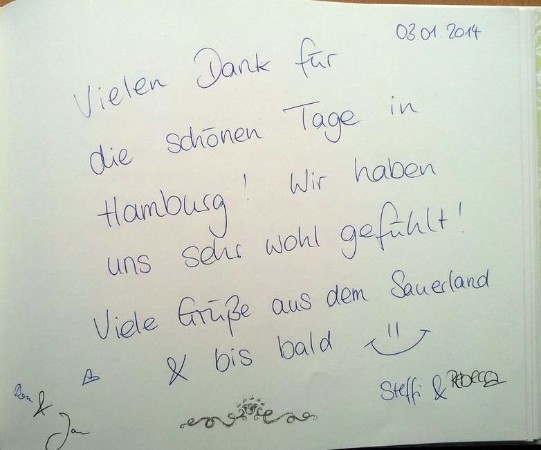 03.01.2014
Vielen Dank für
die schönen Tage in
Hamburg! Wir haben
uns sehr wohl gefühlt!
Viele Grüße aus dem Sauerland
& bis bald
Steffi & Rebecca
&
Jan